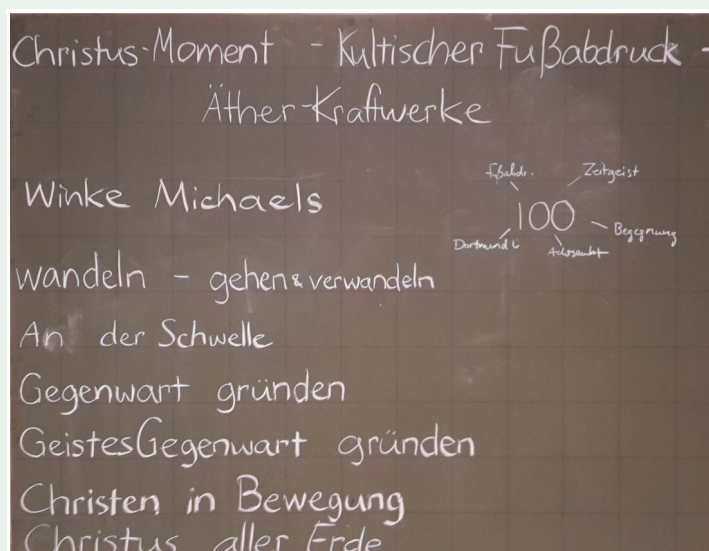 Christus-Moment - Kultischer Fußabdruck -
Äther-Kraftwerke
Fußabdr.
Zeitgeist
Winke Michaels
100
Begegnung
Dortmund
wandeln - gehen & verwandeln
An der Schwelle
Gegenwart gründen
GeistesGegenwart gründen
Christen in Bewegung
Christus aller Erde